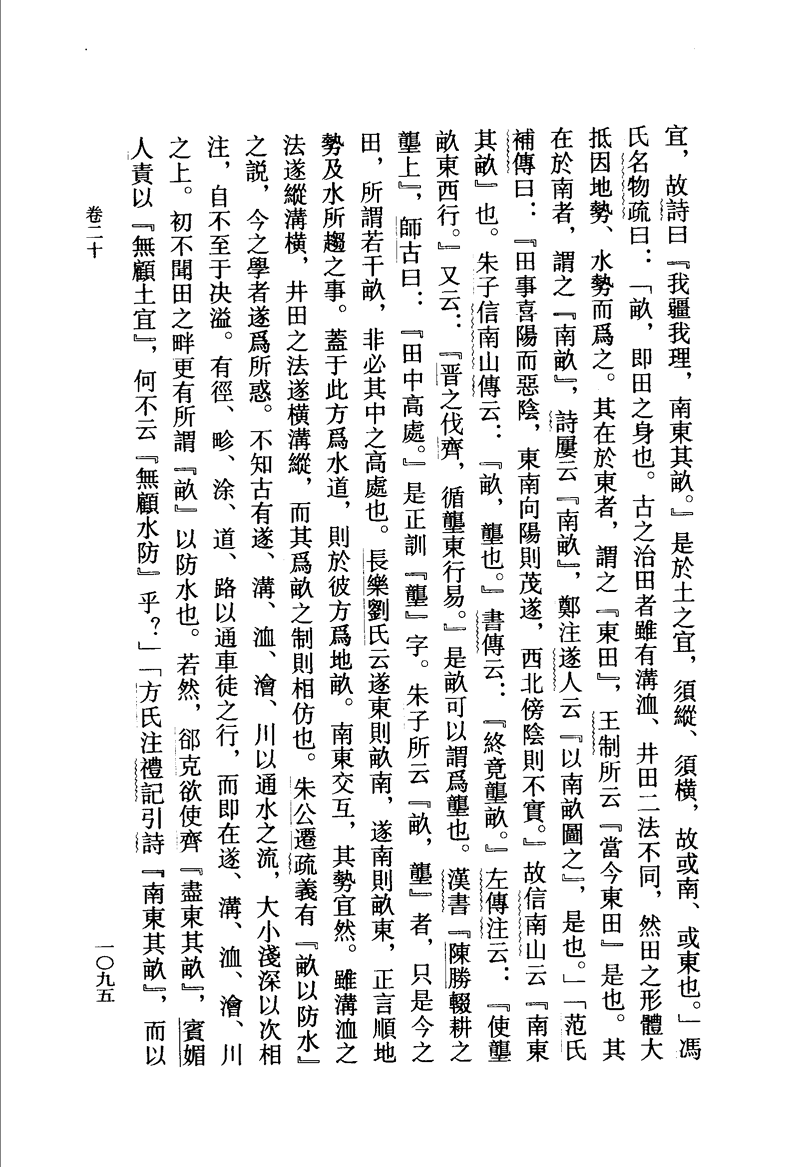 宜，故詩曰『我疆我理，南東其畝。』是於土之宜，須縱、須橫，故或南、或東也。」馮
氏名物疏曰：「畝，即田之身也。古之治田者雖有溝洫、井田二法不同，然田之形體大
抵因地勢、水勢而爲之。其在於東者，謂之『東田』，王制所云『當今東田』是也。其
在於南者，謂之『南畝』，詩屢云『南畝』，鄭注遂人云『以南畝圖之』，是也。」「范氏
補傳曰：『田事喜陽而惡陰，東南向陽則茂遂，西北傍陰則不實。』故信南山云『南東
其畝』也。朱子信南山傳云：『畝，壟也。』書傳云：『終竟壟畝。』左傳注云：『使壟
畝東西行。』又云：『晋之伐齊，循壟東行易。』是畝可以謂爲壟也。漢書『陳勝輟耕之
壟上』，師古曰：『田中高處。』是正訓『壟』字。朱子所云『畝，壟』者，只是今之
田，所謂若干畝，非必其中之高處也。長樂劉氏云遂東則畝南，遂南則畝東，正言順地
勢及水所趨之事。蓋于此方爲水道，則於彼方爲地畝。南東交互，其勢宜然。雖溝洫之
法遂縱溝橫，井田之法遂橫溝縱，而其爲畝之制則相仿也。朱公遷疏義有『畝以防水』
之説，今之學者遂爲所惑。不知古有遂、溝、洫、澮、川以通水之流，大小淺深以次相
注，自不至于决溢。有徑、畛、涂、道、路以通車徒之行，而即在遂、溝、洫、澮、川
之上。初不聞田之畔更有所謂『畝』以防水也。若然，郤克欲使齊『盡東其畝』，賓媚
人責以『無顧土宜』，何不云『無顧水防』乎？」「方氏注禮記引詩『南東其畝』，而以
卷二十
一〇九五